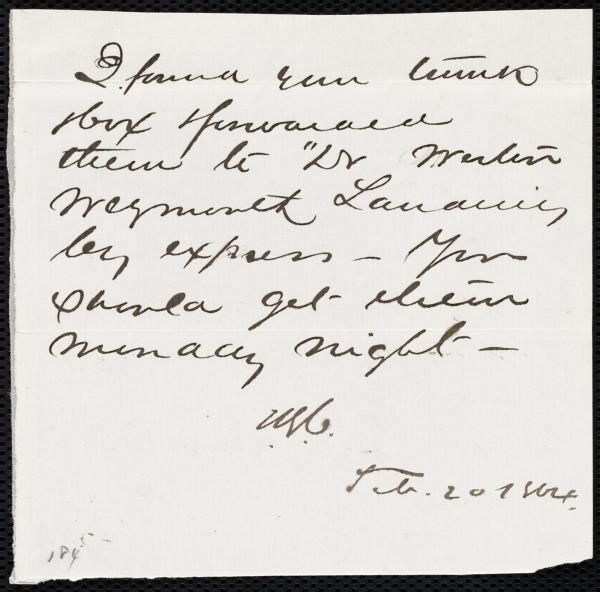 I found your trunk
& box & forwarded
them to "Dr Weston
Weymouth Landing
by express – You
should get them
monday night –
Feb. 20 1864.
184